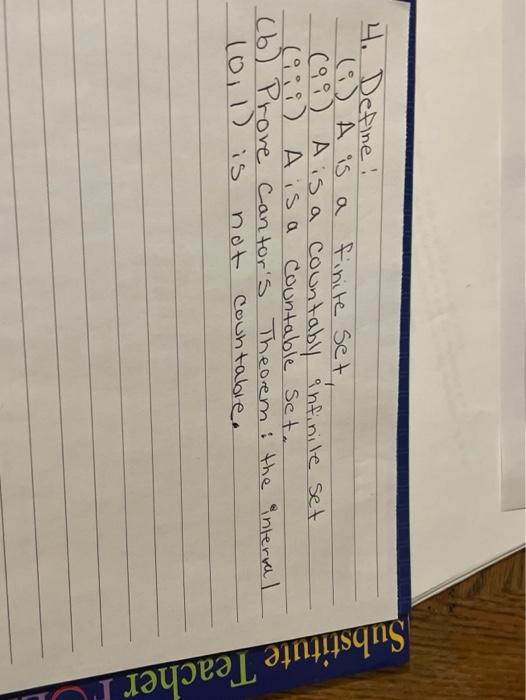 4. Define:
(i) A is a finite set,
(ii) A is a countably infinite set
(iii) A is a countable set.
(b) Prove Cantor's Theorem: the interval
(0,1) is not countable.
Substitute Teacher